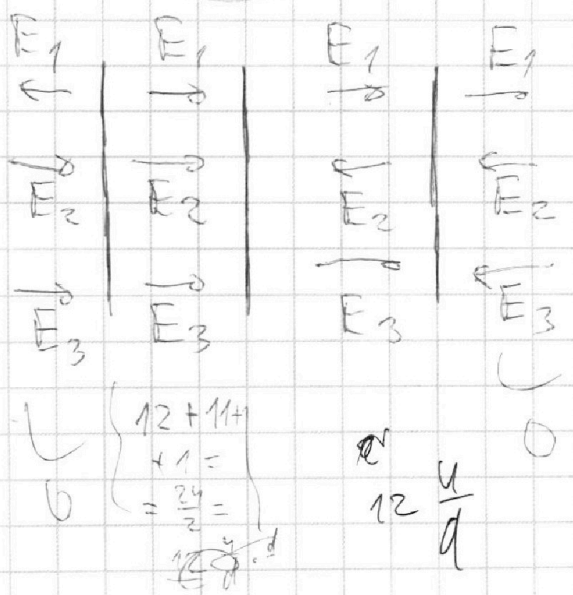 E₁ E₁ E₁ E₁
E₂ E₂ E₂ E₂
E₃ E₃ E₃ E₃
12 + 11 +
+ 1 =
= 24/2 =
0
12 u/d